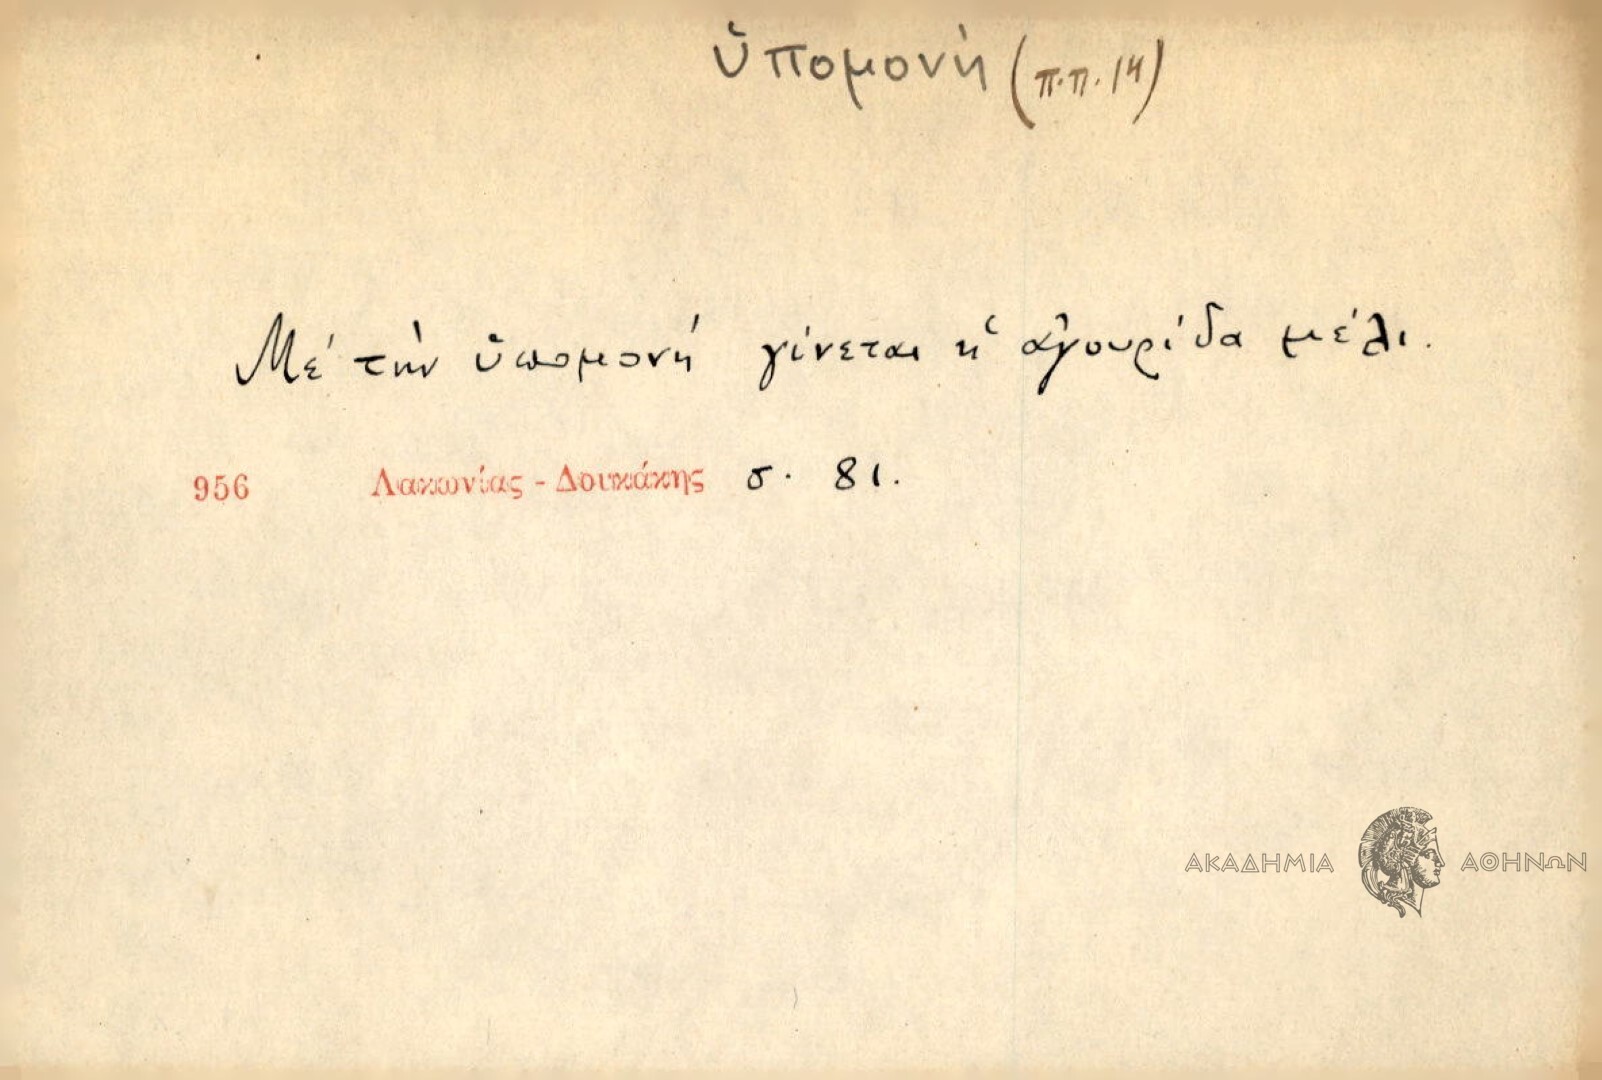 ὑπομονή (π.π. 14)
Μέ τήν ὑπομονή γίνεται ἡ ἀγουρίδα μέλι.
956 Λακωνίας - Δουκάκης σ. 81.
ΑΚΑΔΗΜΙΑ ΑΘΗΝΩΝ